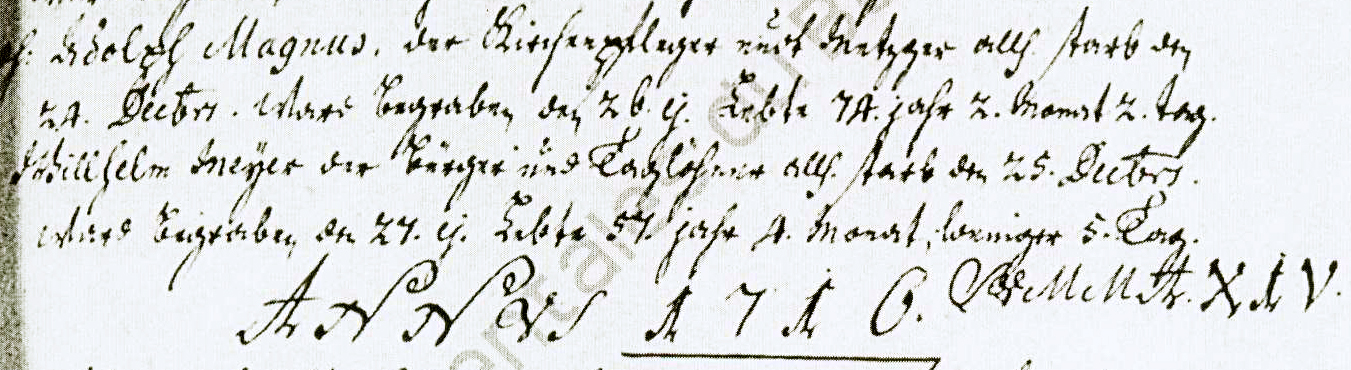 H. Adolph Magnus. der Kirchenpfleger undt Metzger allh. starb den
24. Decbrs. Ward begraben den 26. ej. Lebte 74. jahr 2. Monat 2. tag.
Willhelm Meyer der Bürger und Taglöhner allh. starb den 25. Decbrs.
Ward begraben den 27. ej. Lebte 57. jahr 4. Monat, weniger 5. Tag.
ANNUS 1716. SUMMA. XIV.